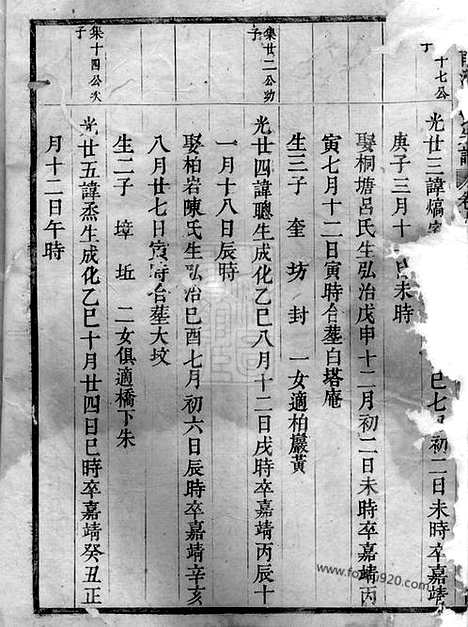 丁 十七公
光廿三諱熇 巳七月初二日未時卒嘉靖
庚子三月十 日未時
娶桐塘呂氏生弘治戊申十二月初二日未時卒嘉靖丙
寅七月十二日寅時合墓白塔庵
生三子 奎 坊 封 一女適柏巖黃
集廿二公幼子
光廿四諱聰生成化乙巳八月十二日戌時卒嘉靖丙辰十
一月十八日辰時
娶柏岩陳氏生弘治巳酉七月初六日辰時卒嘉靖辛亥
八月廿七日寅時合墓大坟
生二子 埻 坵 二女俱適橋下朱
集十四公次子
光廿五諱烝生成化乙巳十月廿四日巳時卒嘉靖癸丑正
月十二日午時
www.fox2008920.com